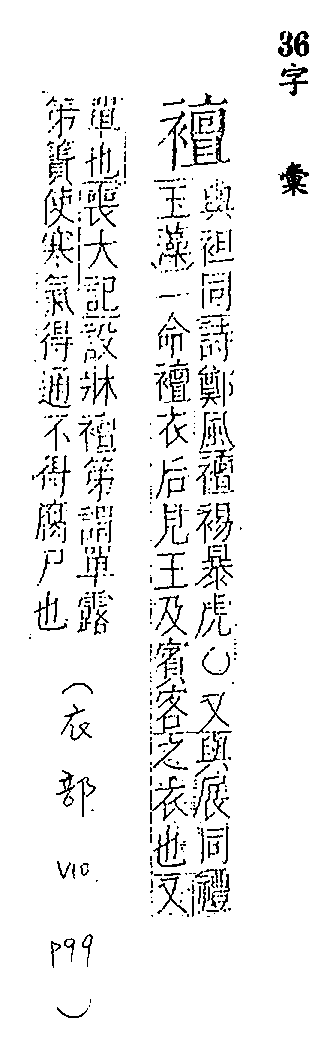 36字彙
襢
與袒同詩鄭風襢裼暴虎○又與展同禮
玉藻一命襢衣后見王及賓客之衣也又
單也喪大記設牀襢第謂單露
第簀使寒氣得通不得腐尸也
(衣部 V10. P99)